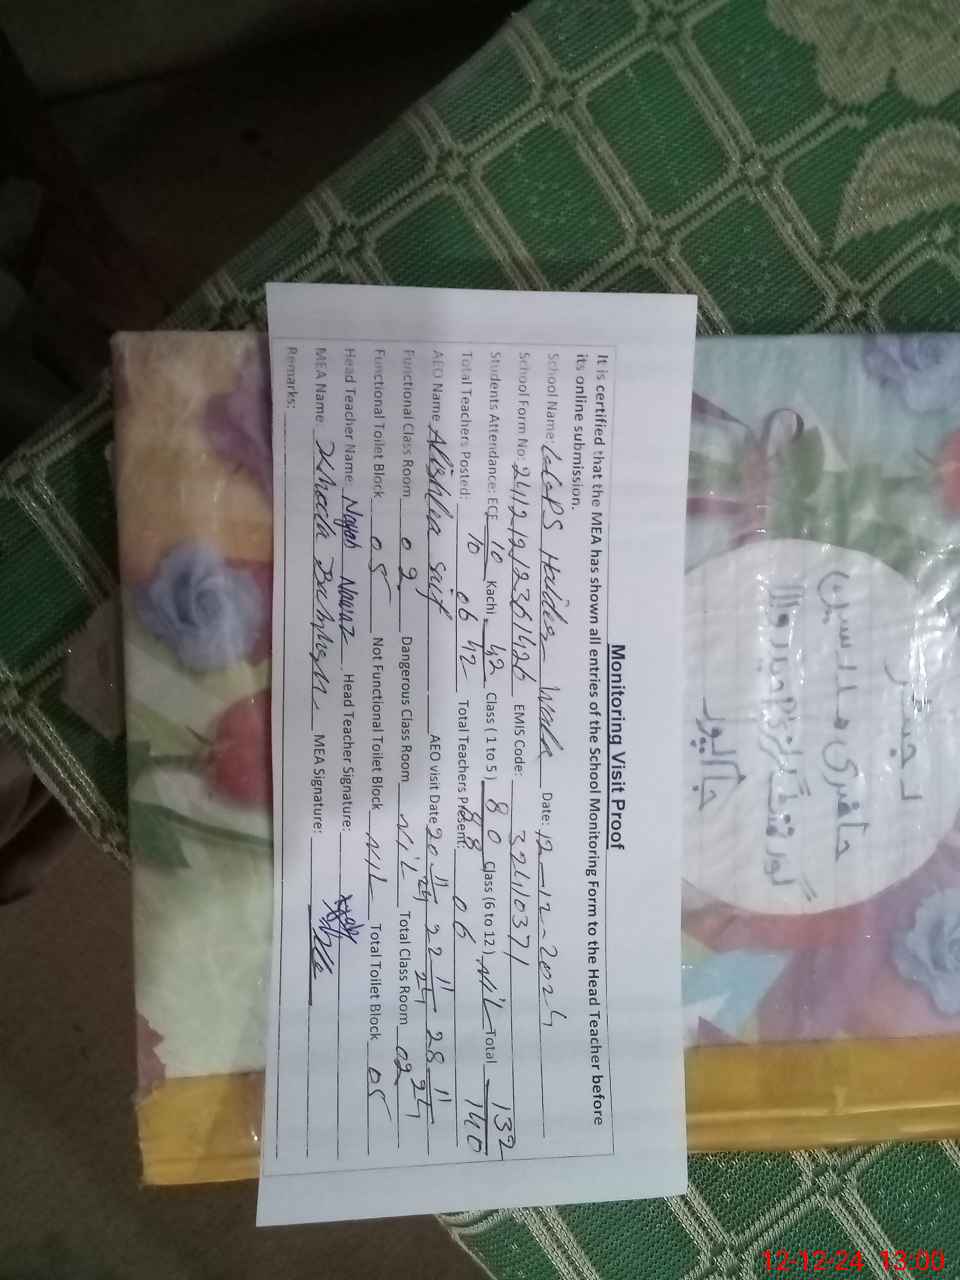 Monitoring Visit Proof
It is certified that the MEA has shown all entries of the School Monitoring Form to the Head Teacher before
its online submission.
School Name: GGPS Haider Wala Date: 12-12-2024
School Form No: EMIS Code: 32410371
Students Attendance: ECE 10 Kachi 42 Class (1 to 5) 80 Class (6 to 12) NIL Total 132
10 42 88 140
Total Teachers Posted: 06 Total Teachers Present: 06
AEO Name Alishba Saif AEO visit Date 20-11-24 22-11-24 28-11-24
Functional Class Room 02 Dangerous Class Room NIL Total Class Room 02
Functional Toilet Block 05 Not Functional Toilet Block NIL Total Toilet Block 05
Head Teacher Name Nayab Nawaz Head Teacher Signature:
MEA Name MEA Signature:
Remarks:
حاضری مدرسین
12-12-24 13:00